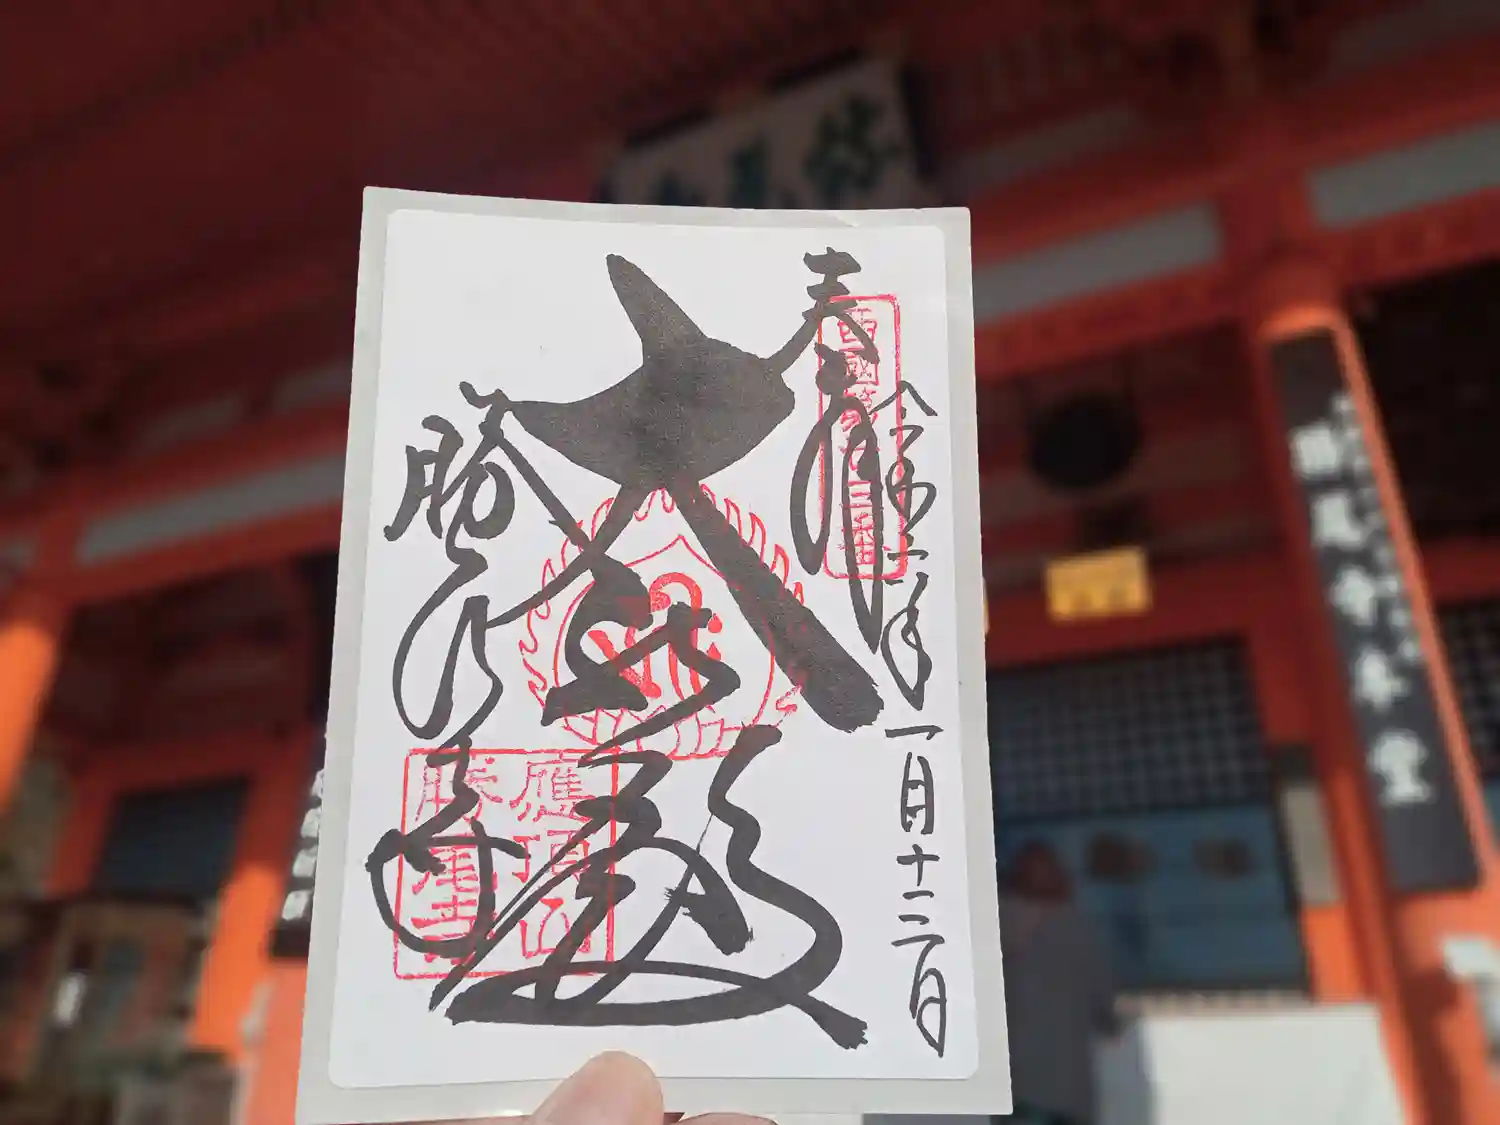 奉拝
西國第廿三番
令和二年一月十二日
大悲殿
勝尾寺
應頂山
勝尾寺
勝尾寺本堂